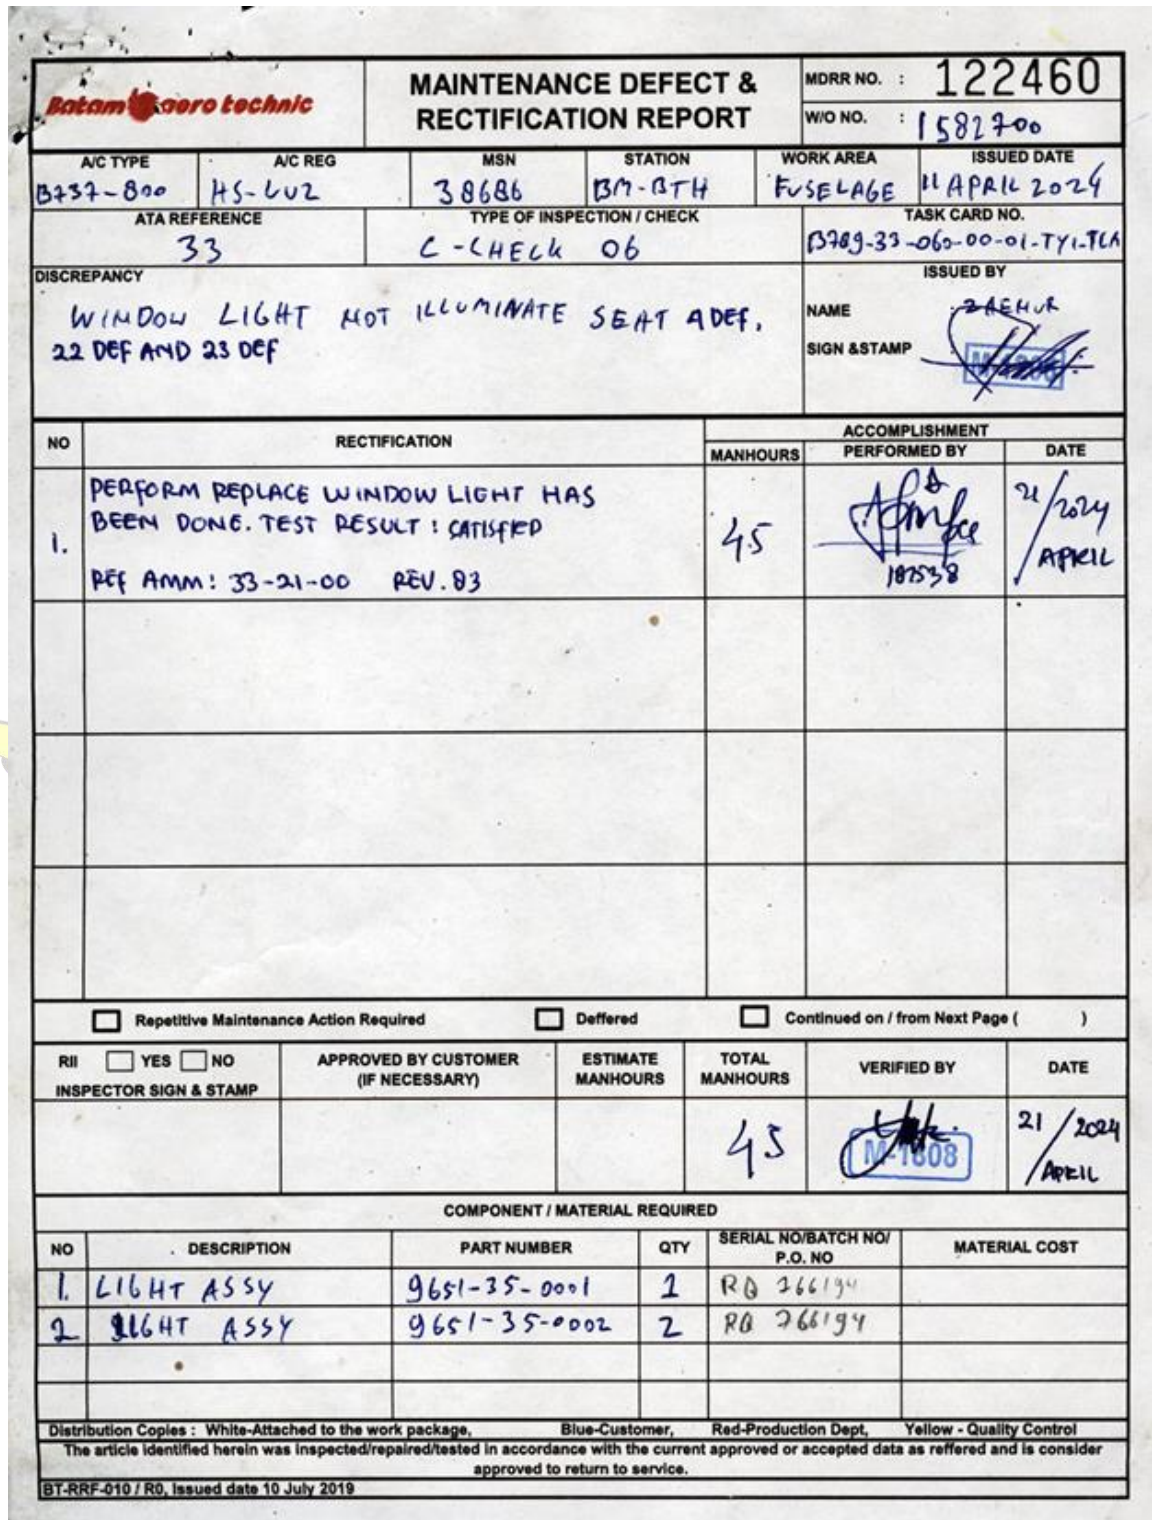 Batam aero technic
MAINTENANCE DEFECT &
RECTIFICATION REPORT
MDRR NO. : 122460
W/O NO. : 1582700
A/C TYPE A/C REG MSN STATION WORK AREA ISSUED DATE
B737-800 HS-LUZ 38686 BM-BTH FUSELAGE 11 APRIL 2024
ATA REFERENCE TYPE OF INSPECTION / CHECK TASK CARD NO.
33 C-CHECK 06
DISCREPANCY ISSUED BY
WINDOW LIGHT NOT ILLUMINATE SEAT 9 DEF,
22 DEF AND 23 DEF
NAME
SIGN &STAMP
NO RECTIFICATION ACCOMPLISHMENT
MANHOURS PERFORMED BY DATE
1.
PERFORM REPLACE WINDOW LIGHT HAS
BEEN DONE. TEST RESULT : SATISFIED
REF AMM: 33-21-00 REV. 83
21/2024
APRIL
Repetitive Maintenance Action Required Deffered Continued on / from Next Page ( )
RII YES NO
INSPECTOR SIGN & STAMP
APPROVED BY CUSTOMER
(IF NECESSARY)
ESTIMATE
MANHOURS
TOTAL
MANHOURS
VERIFIED BY DATE
M-1808
21/2024
APRIL
COMPONENT / MATERIAL REQUIRED
NO DESCRIPTION PART NUMBER QTY SERIAL NO/BATCH NO/ P.O. NO MATERIAL COST
1. LIGHT ASSY 9651-35-0001 1
2 LIGHT ASSY 9651-35-0002 2
Distribution Copies : White-Attached to the work package, Blue-Customer, Red-Production Dept, Yellow - Quality Control
The article identified herein was inspected/repaired/tested in accordance with the current approved or accepted data as reffered and is consider
approved to return to service.
BT-RRF-010 / R0, Issued date 10 July 2019